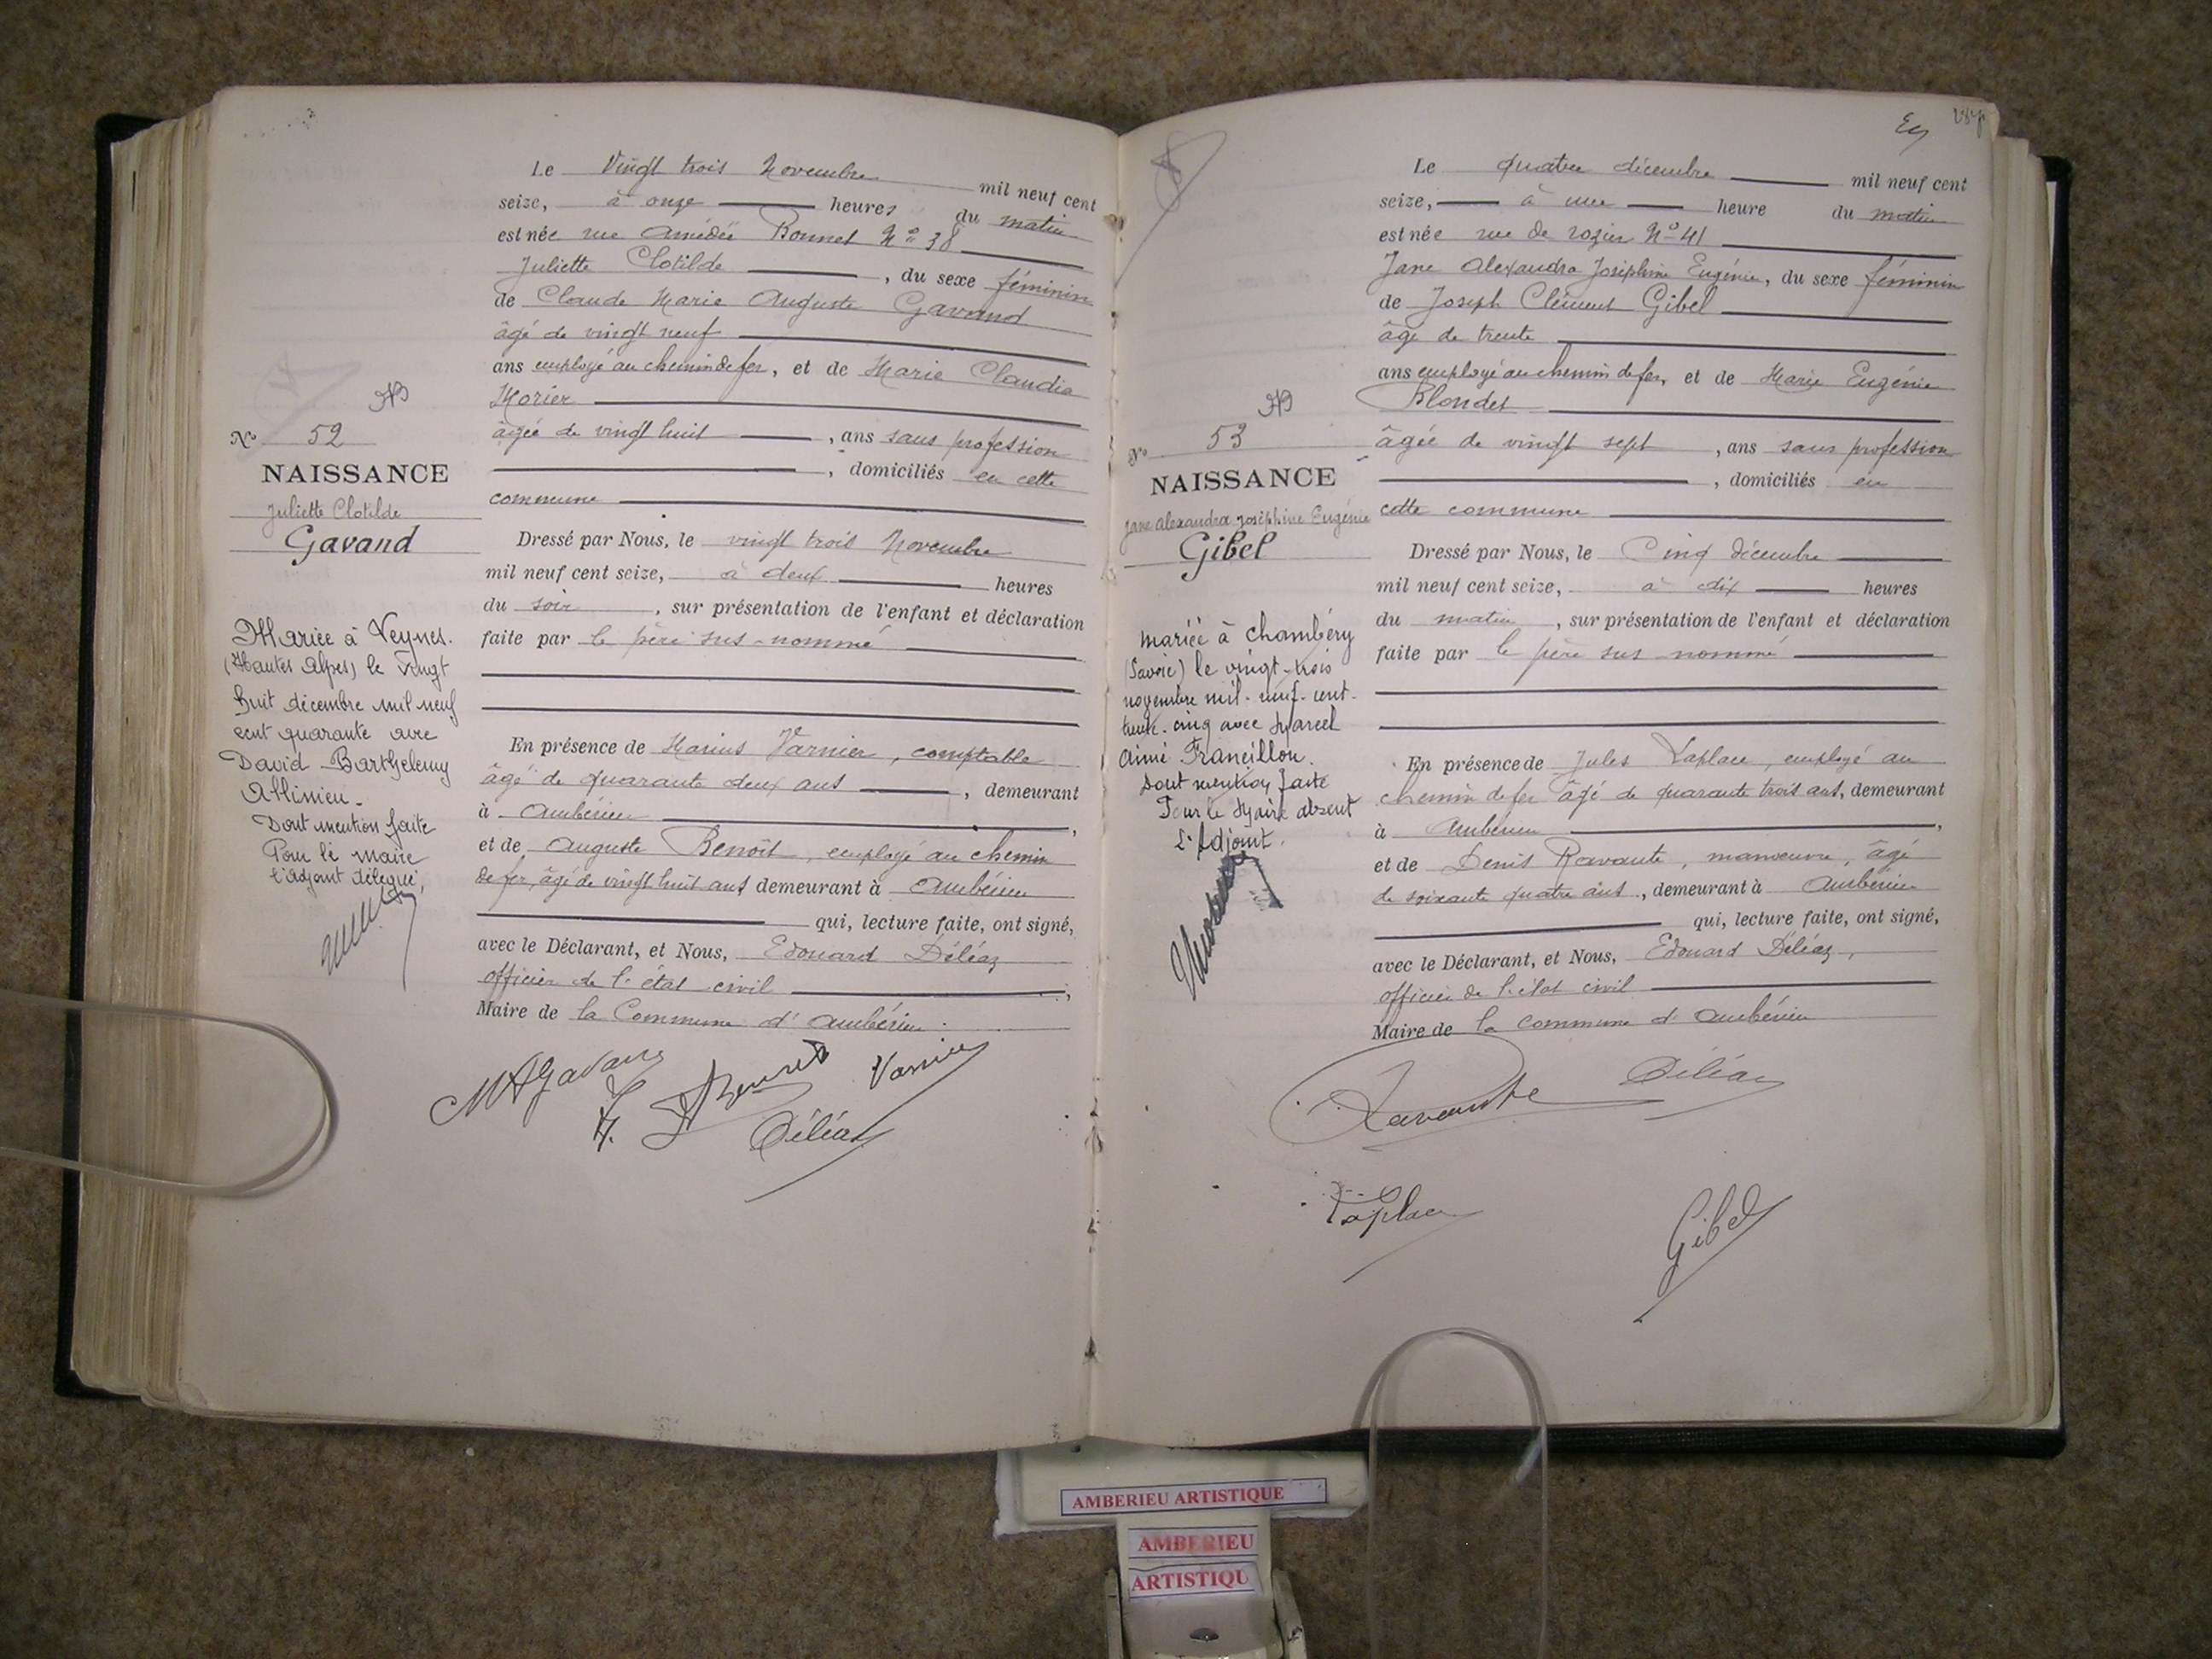 Le Vingt trois Novembre mil neuf cent
seize, à onze heures du matin
est née rue Amédée Bonnet No 38
Juliette Clotilde, du sexe féminin
de Claude Marie Auguste Gavand
âgé de vingt neuf
ans employé au chemin de fer, et de Marie Claudia
Morier
âgée de vingt huit, ans sans profession
, domiciliés en cette
commune
No 52
NAISSANCE
Juliette Clotilde
Gavand
Dressé par Nous, le vingt trois Novembre
mil neuf cent seize, à deux heures
du soir, sur présentation de l'enfant et déclaration
faite par le père sus-nommé
En présence de Marius Varnier, comptable
âgé de quarante deux ans, demeurant
à Ambérieu,
et de Auguste Benoît, employé au chemin
de fer, âgé de vingt huit ans demeurant à Ambérieu
qui, lecture faite, ont signé,
avec le Déclarant, et Nous, Edouard Déléaz
officier de l'état civil,
Maire de la Commune d'Ambérieu.
Mariée à Veynes.
(Hautes Alpes) le vingt
huit décembre mil neuf
cent quarante avec
David Barthelemy
Dont mention faite
Pour le maire
l'adjoint délégué,
MAGavand
Varnier
Déléaz
287
Le quatre décembre mil neuf cent
seize, à une heure du matin
est née rue de rozier No 41
Jane Alexandra Joséphine Eugénie, du sexe féminin
de Joseph Clément Gibel
âgé de trente
ans employé au chemin de fer, et de Marie Eugénie
Blondet
âgée de vingt sept, ans sans profession
, domiciliés en
cette commune
No 53
NAISSANCE
Jane Alexandra Joséphine Eugénie
Gibel
Dressé par Nous, le Cinq décembre
mil neuf cent seize, à dix heures
du matin, sur présentation de l'enfant et déclaration
faite par le père sus-nommé
En présence de Jules Laplace, employé au
chemin de fer âgé de quarante trois ans, demeurant
à Ambérieu,
et de Denis Ravaute, manoeuvre, âgé
de soixante quatre ans, demeurant à Ambérieu
qui, lecture faite, ont signé,
avec le Déclarant, et Nous, Edouard Déléaz,
officier de l'état civil
Maire de la commune d'Ambérieu
mariée à Chambéry
(Savoie) le vingt-trois
novembre mil-neuf-cent-
trente-cinq avec Marcel
Aimé Francillon.
Dont mention faite
Pour le Maire absent
L'Adjoint.
Ravaute
Déléaz
Laplace
Gibel
AMBERIEU ARTISTIQUE
AMBERIEU
ARTISTIQU